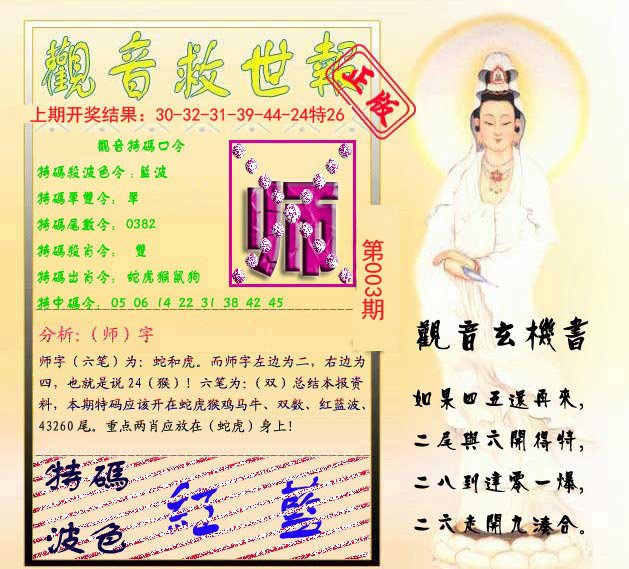 觀音救世報
正版
上期开奖结果：30-32-31-39-44-24特26
觀音特碼口令
特碼殺波色令：藍波
特碼單雙令： 單
特碼尾數令： 0382
特碼殺肖令： 雙
特碼出肖令： 蛇虎猴鼠狗
特中碼令： 05 06 14 22 31 38 42 45
师
第003期
分析:（师）字
师字（六笔）为：蛇和虎。而师字左边为二，右边为
四，也就是说24（猴）！六笔为:（双）总结本报资
料，本期特码应该开在蛇虎猴鸡马牛、双数、红蓝波、
43260尾。重点两肖应放在（蛇虎）身上！
特碼
波色
紅 藍
觀音玄機書
如果四五還再來，
二尾與六開得特，
二八到達零一爆，
二六走開九湊合。